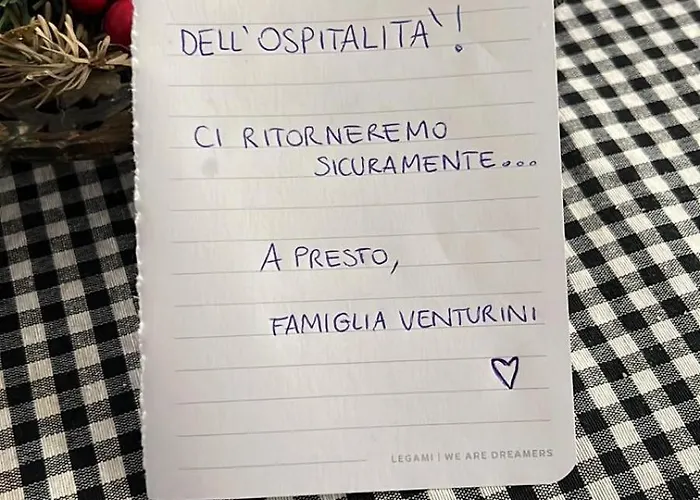 DELL'OSPITALITA'!
CI RITORNEREMO
SICURAMENTE...
A PRESTO,
FAMIGLIA VENTURINI
LEGAMI | WE ARE DREAMERS